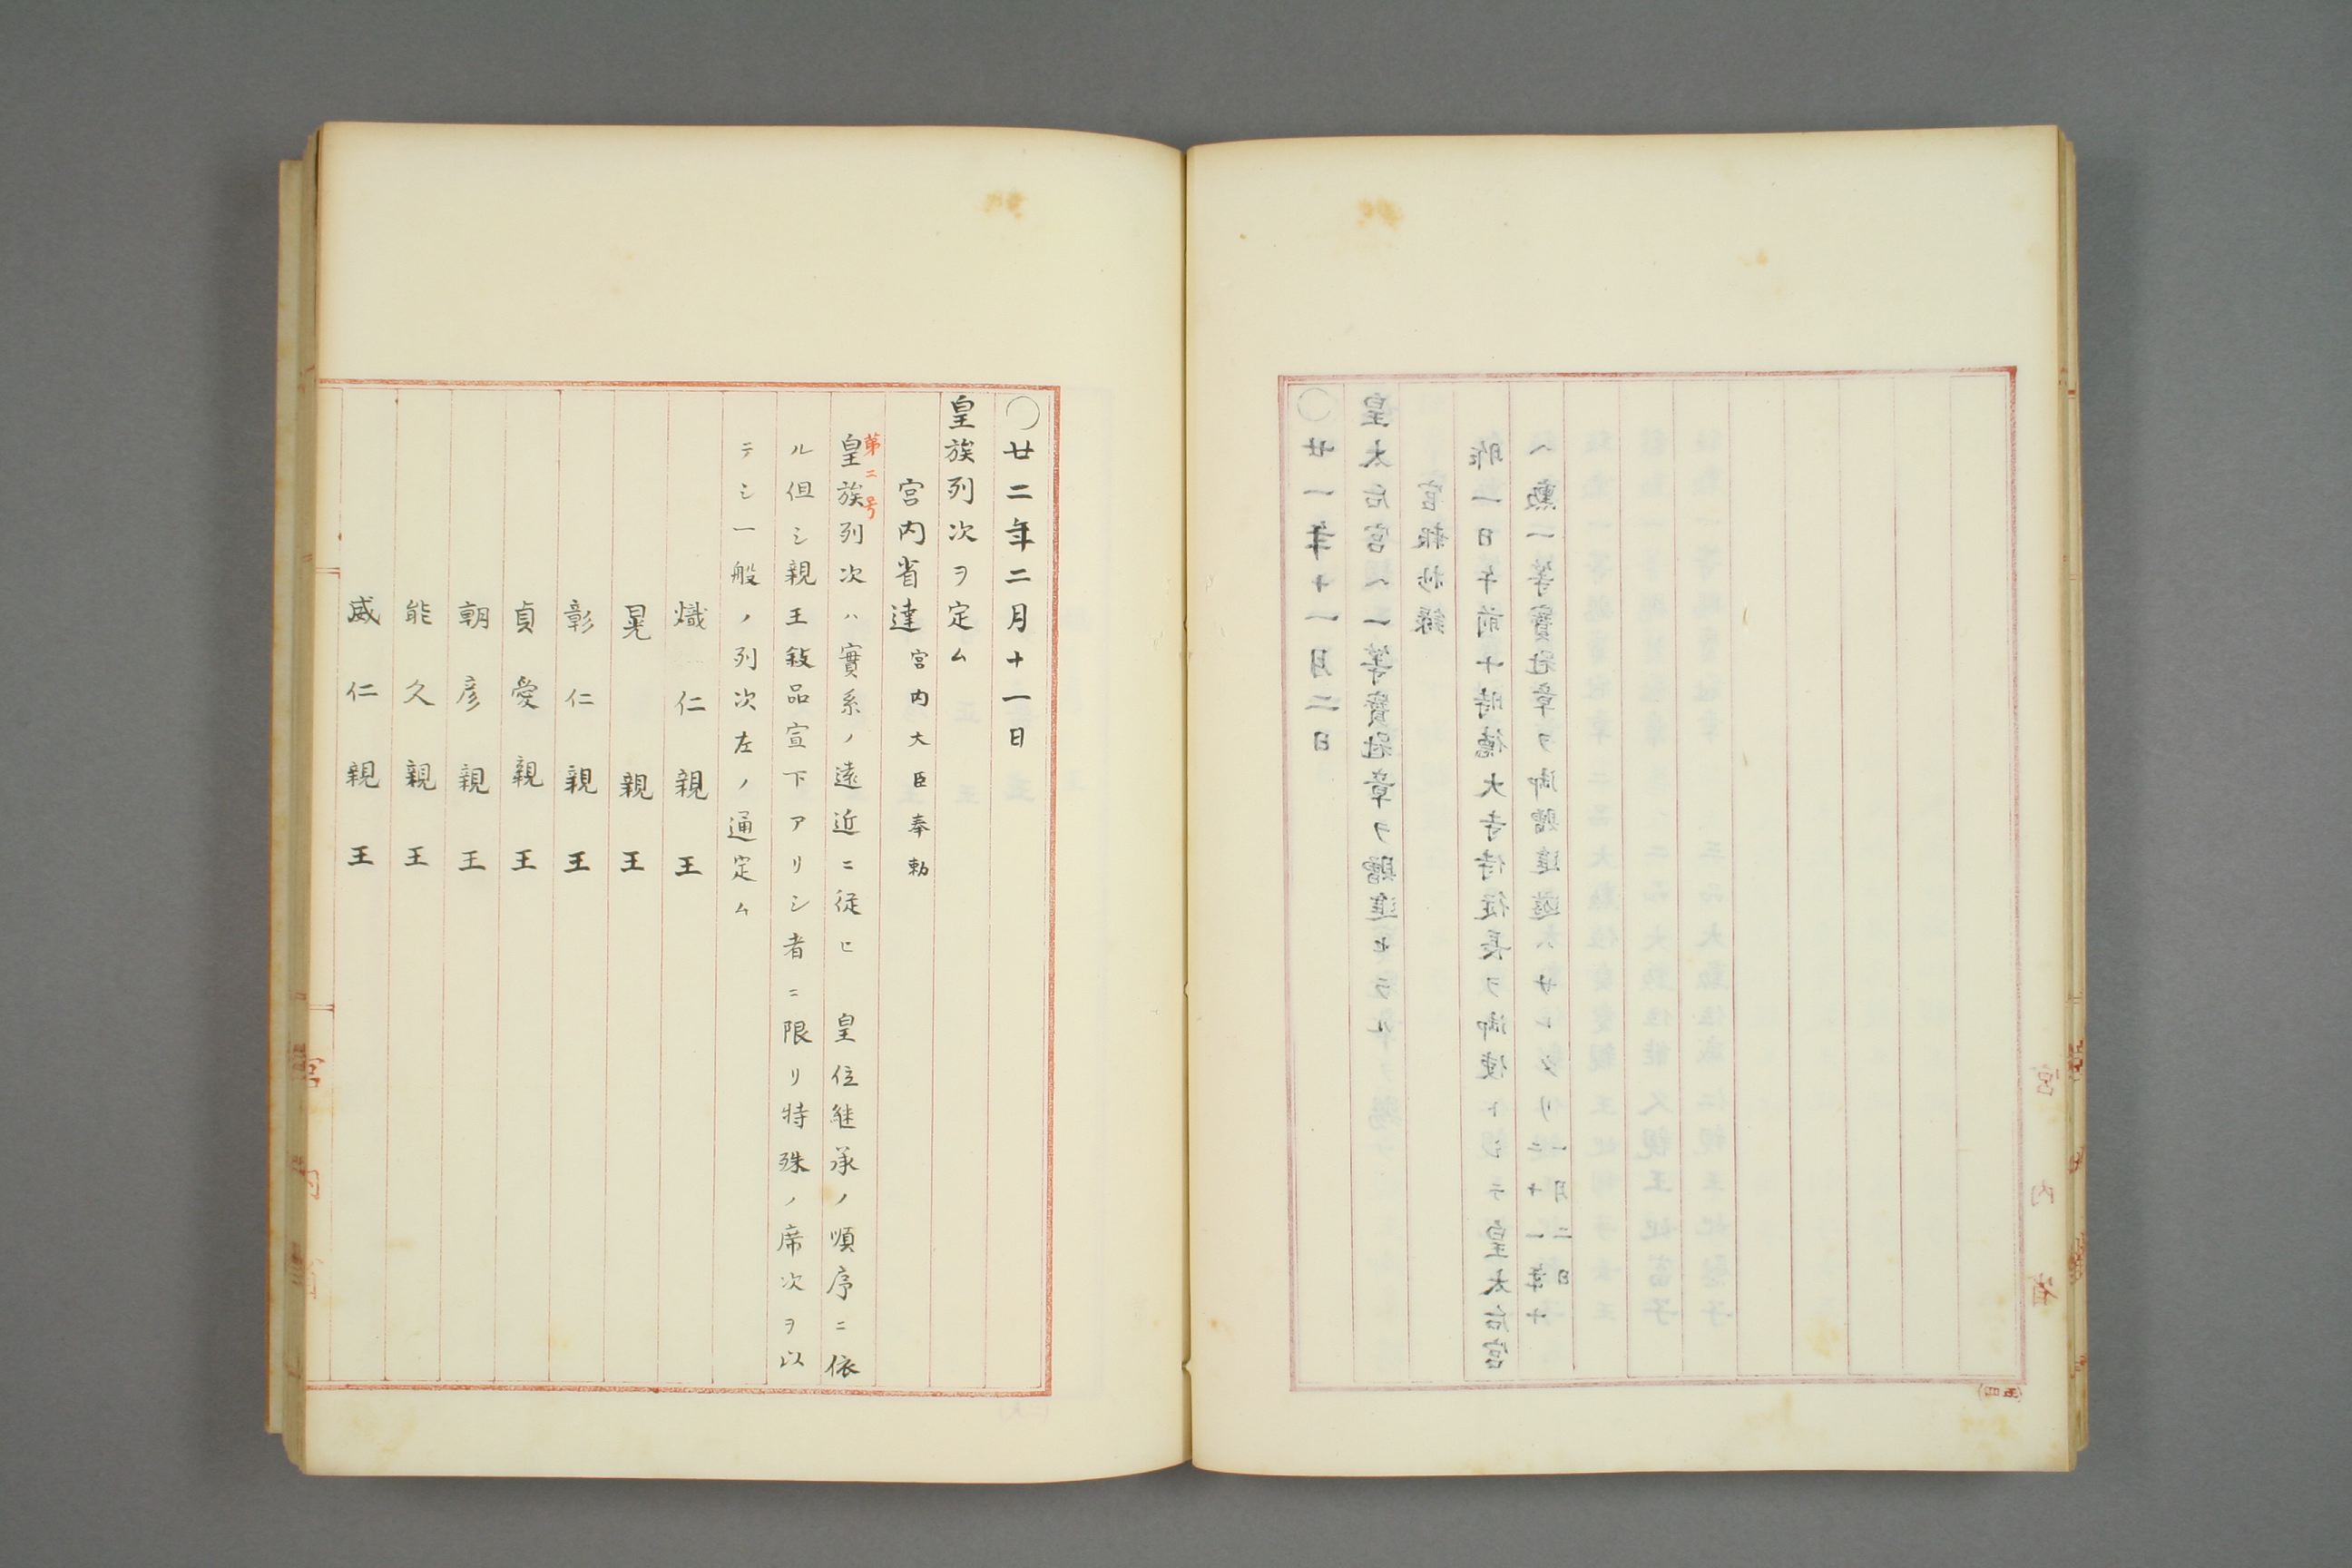 ○廿一年十一月二日
皇太后宮ヘ一等寶冠章ヲ贈進セラル
官報抄録
昨一日午前十時德大寺侍従長ヲ御使トシテ皇太后宮
ヘ勲一等寶冠章ヲ御贈進遊ハサレタリ
二十一年十
一月二日
宮内省
○廿二年二月十一日
皇族列次ヲ定ム
宮内省達 宮内大臣奉勅
第二号
皇族列次ハ實系ノ遠近ニ従ヒ 皇位継承ノ順序ニ依
ル但シ親王敍品宣下アリシ者ニ限リ特殊ノ席次ヲ以
テシ一般ノ列次左ノ通定ム
熾仁親王
晃親王
彰仁親王
貞愛親王
朝彦親王
能久親王
威仁親王
宮内省